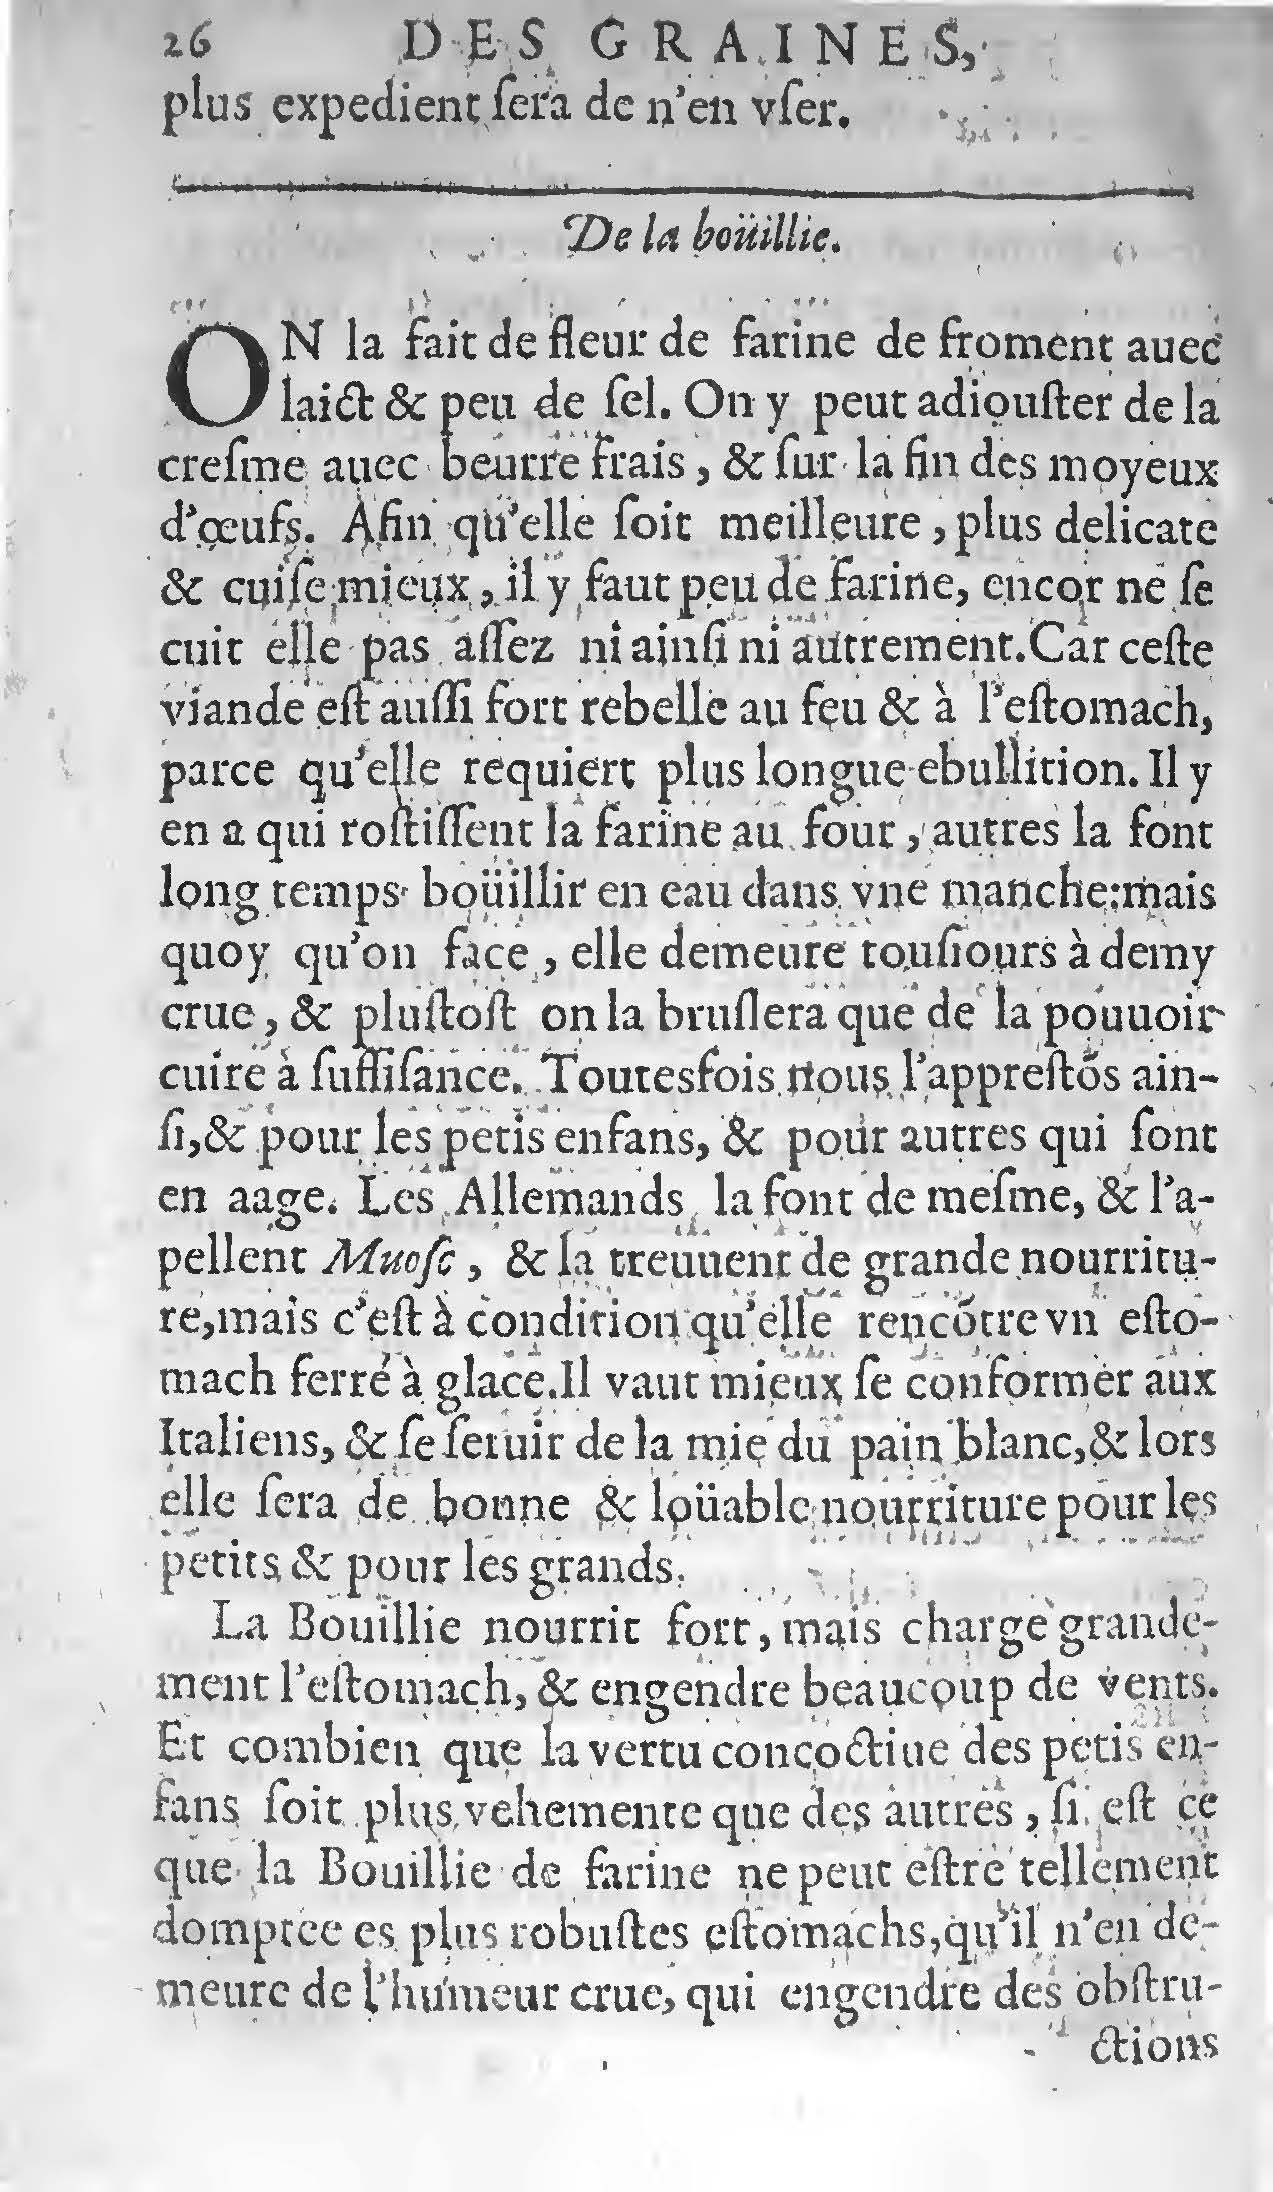 26 DES GRAINES,
plus expedient ſera de n'en vſer.
De la boüillie.
ON la fait de fleur de farine de froment auec
laict & peu de ſel. On y peut adiouſter de la
creſme auec beurre frais, & ſur la fin des moyeux
d'œufs. Afin qu'elle ſoit meilleure, plus delicate
& cuiſe mieux, il y faut peu de farine, encor ne ſe
cuit elle pas aſſez ni ainſi ni autrement. Car ceſte
viande eſt auſſi fort rebelle au feu & à l'eſtomach,
parce qu'elle requiert plus longue ebullition. Il y
en a qui roſtiſſent la farine au four, autres la font
long temps boüillir en eau dans vne manche: mais
quoy qu'on face, elle demeure touſiours à demy
crue, & pluſtoſt on la bruſlera que de la pouuoir
cuire à ſuffiſance. Toutesfois nous l'appreſtõs ain-
ſi, & pour les petis enfans, & pour autres qui ſont
en aage. Les Allemands la font de meſme, & l'a-
pellent Muoſc, & la treuuent de grande nourritu-
re, mais c'eſt à condition qu'elle rencõtre vn eſto-
mach ferré à glace. Il vaut mieux ſe conformer aux
Italiens, & ſe ſeruir de la mie du pain blanc, & lors
elle ſera de bonne & loüable nourriture pour les
petits & pour les grands.
La Bouillie nourrit fort, mais charge grande-
ment l'eſtomach, & engendre beaucoup de vents.
Et combien que la vertu concoctiue des petis en-
fans ſoit plus vehemente que des autres, ſi eſt ce
que la Bouillie de farine ne peut eſtre tellement
domptee es plus robuſtes eſtomachs, qu'il n'en de-
meure de l'humeur crue, qui engendre des obſtru-
ctions